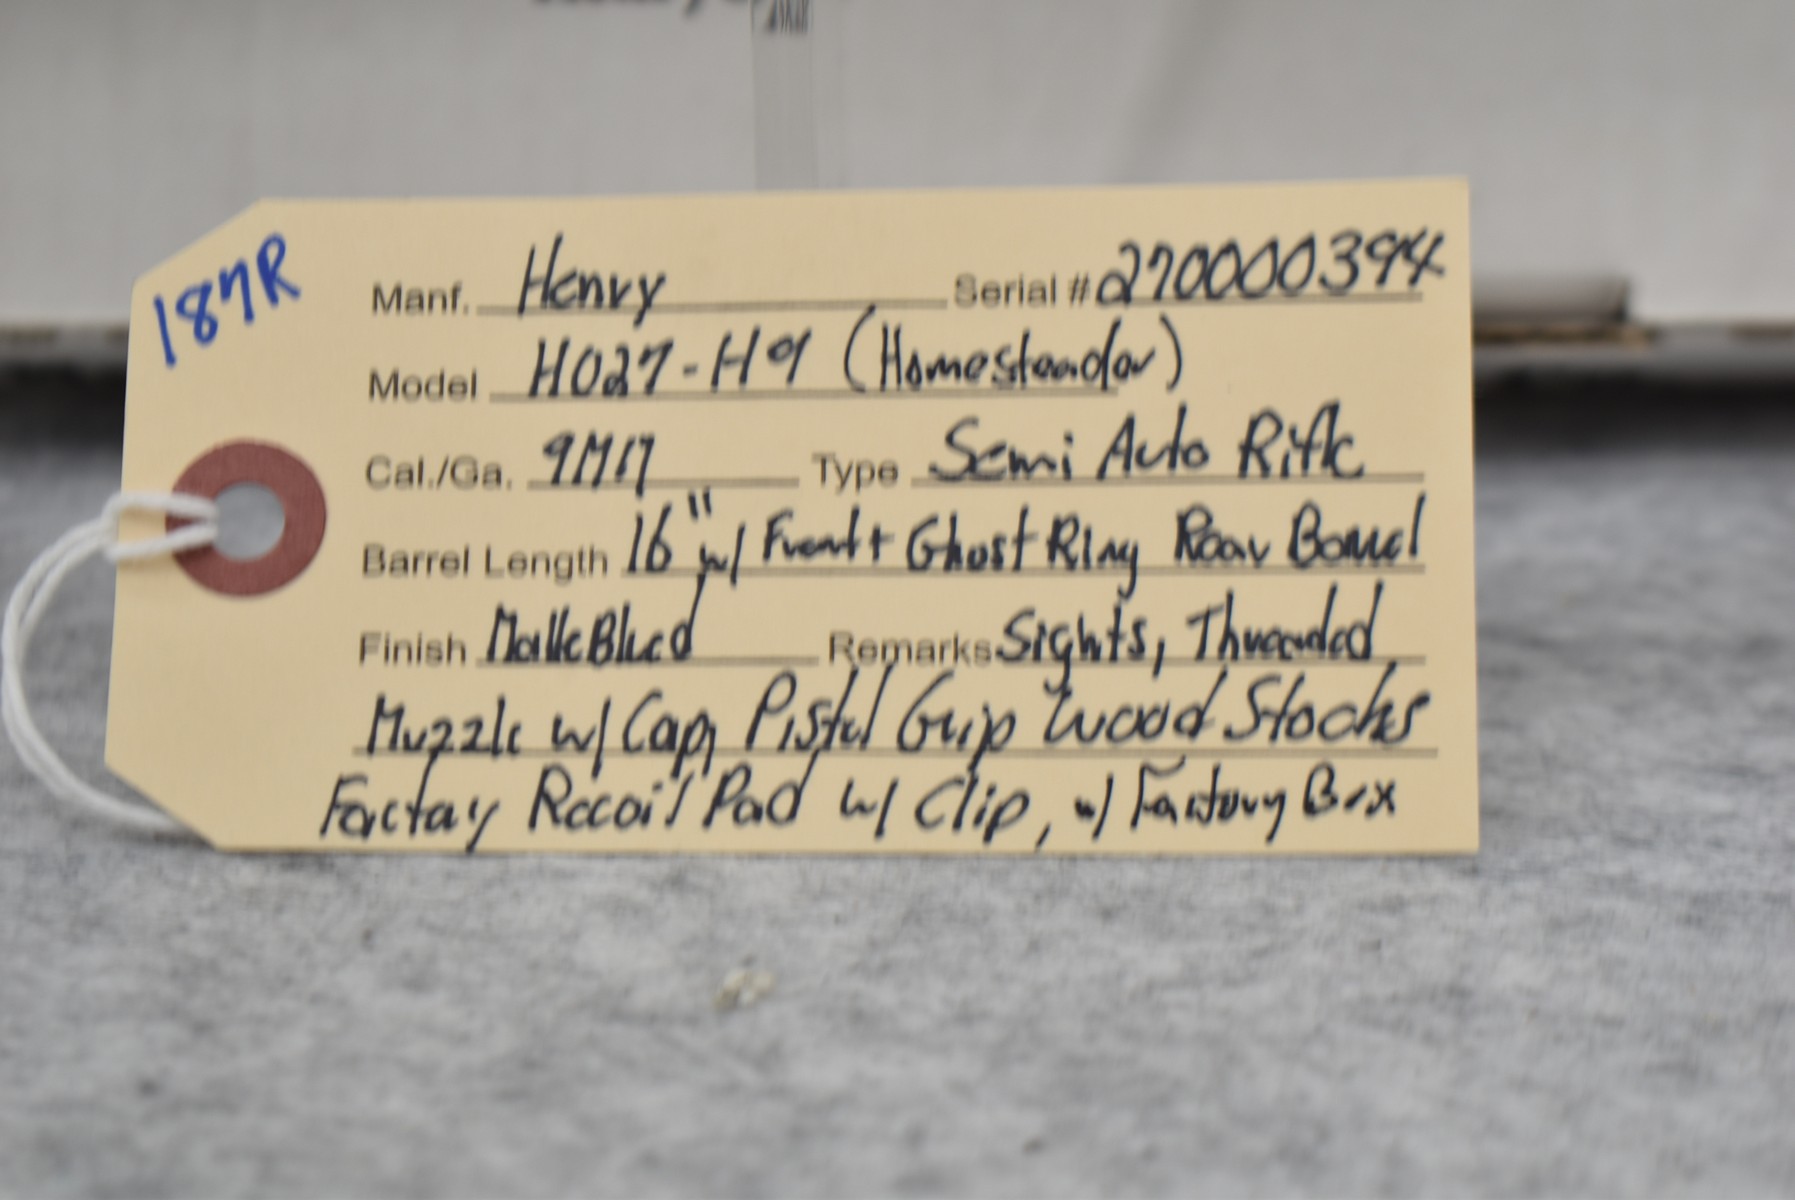 187R
Manf. Henry Serial # 270000394
Model H027-H9 (Homesteader)
Cal./Ga. 9MM Type Semi Auto Rifle
Barrel Length 16" w/ Front + Ghost Ring Rear Barrel
Finish Matte Blued Remarks Sights, Threaded
Muzzle w/ Cap, Pistol Grip Wood Stocks
Factory Recoil Pad w/ Clip, w/ Factory Box